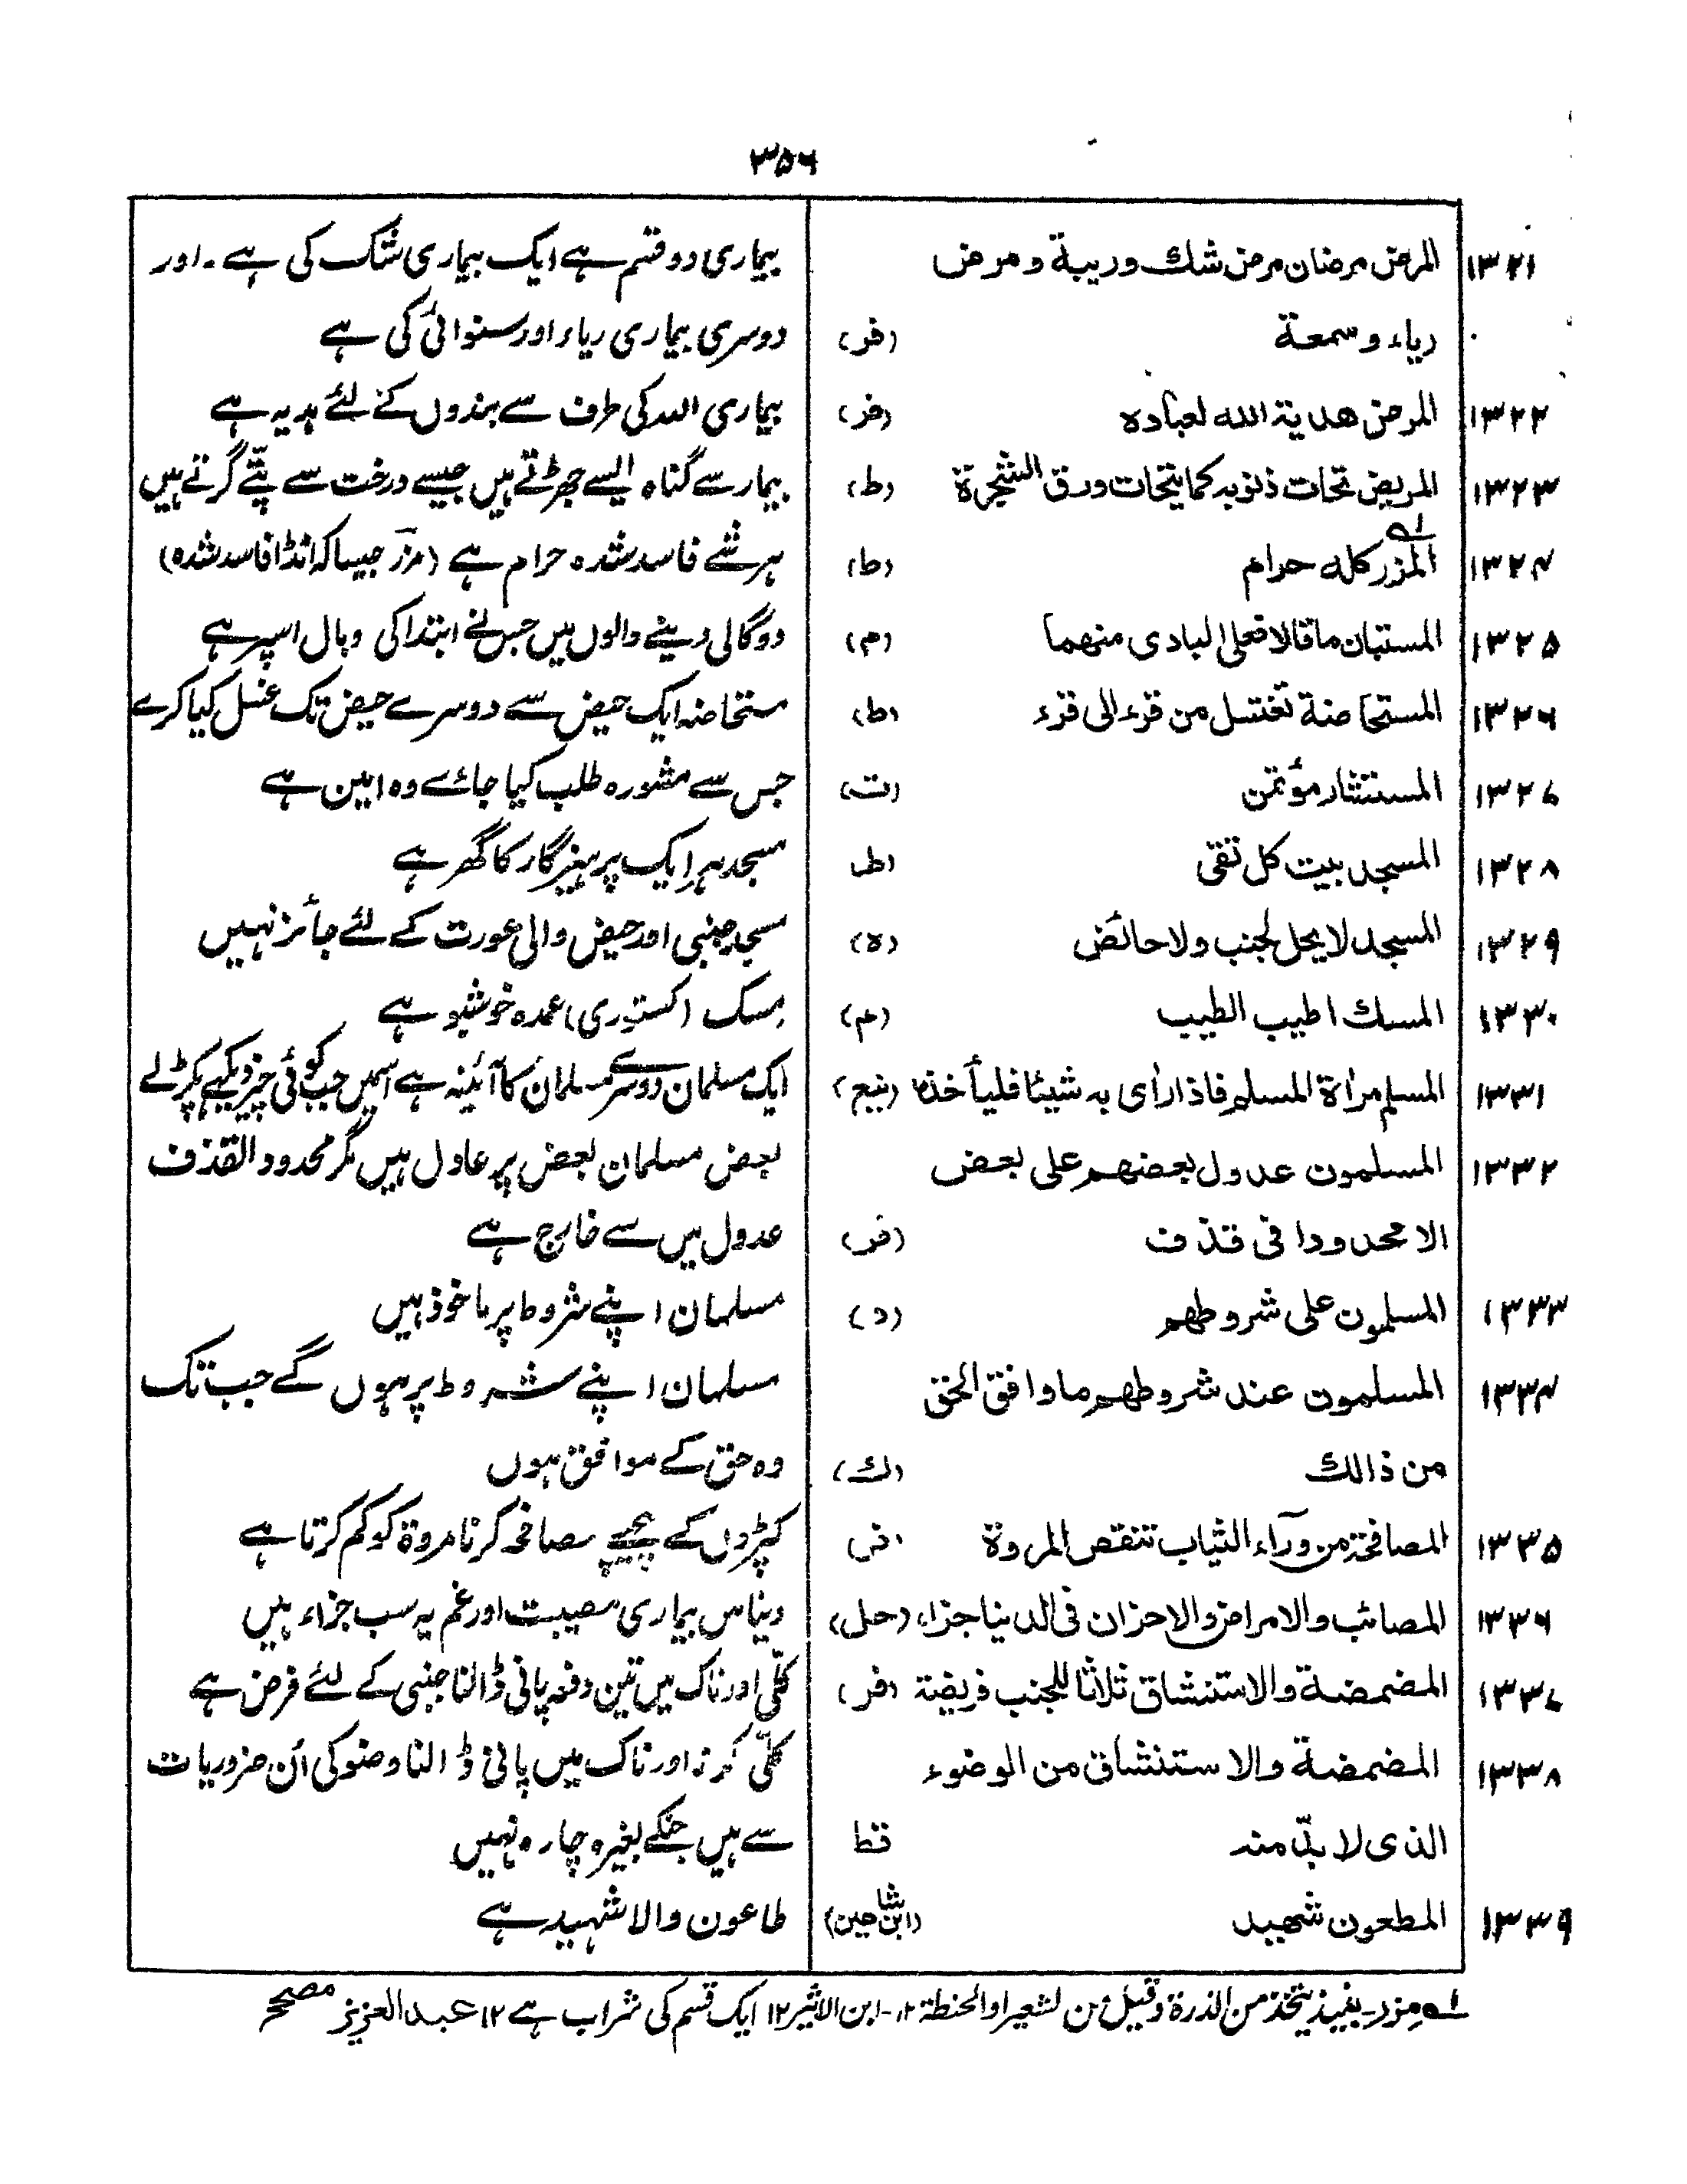 ۳۵۶
۱۳۲۱ المرض مرضان مرض شك وريبة ومرض بیماری دو قسم ہے ایک بیماری شک کی ہے۔ اور
رياء وسمعة (فر) دوسری بیماری ریاء اور سنوائی کی ہے
۱۳۲۲ المرض هدية الله لعباده (فر) بیماری اللہ کی طرف سے بندوں کے لئے ہدیہ ہے
۱۳۲۳ المريض تحات ذنوبه كما يتحات ورق الشجرة (ط) بیمار سے گناہ ایسے جھڑتے ہیں جیسے درخت سے پتّے گرتے ہیں
۱۳۲۴ المزر كله حرام لہ (ط) ہر شے فاسد شدہ حرام ہے (مزر جیسا کہ انڈا فاسد شدہ)
۱۳۲۵ المستبان ما قالا فعلى البادى منهما (م) دو گالی دینے والوں میں جس نے ابتدا کی وبال اسپر ہے
۱۳۲۶ المستحاضة تغتسل من قرء الى قرء (ط) مستحاضہ ایک حیض سے دوسرے حیض تک غسل کیا کرے
۱۳۲۷ المستشار مؤتمن (ت) جس سے مشورہ طلب کیا جائے وہ امین ہے
۱۳۲۸ المسجد بيت كل تقى (ط) مسجد ہر ایک پرہیزگار کا گھر ہے
۱۳۲۹ المسجد لا يحل لجنب ولا حائض (ه) مسجد جنبی اور حیض والی عورت کے لئے جائز نہیں
۱۳۳۰ المسك اطيب الطيب (م) مسک (کستوری) عمدہ خوشبو ہے
۱۳۳۱ المسلم مرأة المسلم فاذا رأى به شيئا فليأخذه (بنیع) ایک مسلمان دوسرے مسلمان کا آئینہ ہے اسمیں جب کوئی چیز دیکھے پکڑلے
۱۳۳۲ المسلمون عدول بعضهم على بعض بعض مسلمان بعض پر عادل ہیں مگر محدود القذف
الا محدودا فى قذف (فر) عدول میں سے خارج ہے
۱۳۳۳ المسلمون على شروطهم (د) مسلمان اپنے شروط پر ماخوذ ہیں
۱۳۳۴ المسلمون عند شروطهم ما وافق الحق مسلمان اپنے شروط پر ہوں گے جب تک
من ذالك (ك) وہ حق کے موافق ہوں
۱۳۳۵ المصافحة من وراء الثياب تنقص المروة (فر) کپڑوں کے پیچھے مصافحہ کرنا مروۃ کو کم کرتا ہے
۱۳۳۶ المصائب والامراض والاحزان فى الدنيا جزاء (حل) دنیا میں بیماری مصیبت اور غم یہ سب جزاء ہیں
۱۳۳۷ المضمضة والاستنشاق ثلاثا للجنب فريضة (فر) کلّی اور ناک میں تین دفعہ پانی ڈالنا جنبی کے لئے فرض ہے
۱۳۳۸ المضمضة والاستنشاق من الوضوء کلّی کرنا اور ناک میں پانی ڈالنا وضو کی اُن ضروریات
الذى لا بدّ منه قط سے ہیں جنکے بغیر چارہ نہیں
۱۳۳۹ المطعون شهيد (ابن شاهين) طاعون والا شہید ہے
لہ مزر۔ نبيذ يتخذ من الذرة وقيل من الشعير او الحنطة ۱۲۔ ابن الاثير ۱۲ ایک قسم کی شراب ہے ۱۲ عبد العزیز مصحح